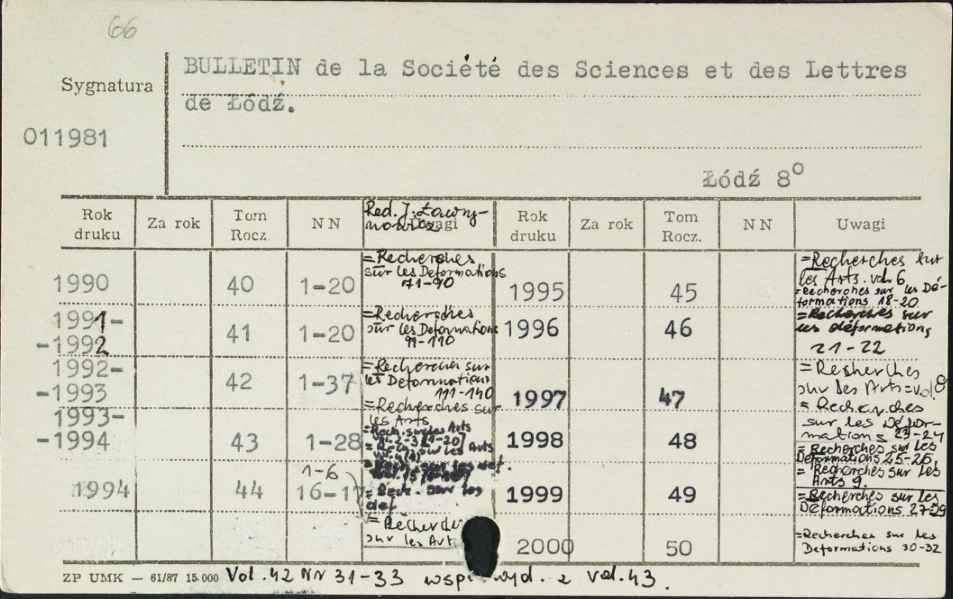 66
BULLETIN de la Société des Sciences et des Lettres
Sygnatura
de Łódź.
011981
Łódź 8⁰
Rok druku
Za rok
Tom Rocz.
NN
Red. J. Ławry-
nowicz Uwagi
Rok druku
Za rok
Tom Rocz.
NN
Uwagi
1990 40 1-20 =Recherches
sur les Deformations
71-90
1991-
-1992 41 1-20 =Recherches
sur les Deformations
91-110
1992-
-1993 42 1-37 =Recherches sur
les Deformations
111-140
=Recherches sur
les Arts
1993-
-1994 43 1-28 =Rech. sur les Arts
sur les Arts
1994 44 1-6
16-17
=Rech. sur les
def
=Recherches
sur les Arts
1995 45 =Recherches sur
les Arts. vol. 6
=Recherches sur les Dé-
formations 18-20
1996 46 =Recherches sur
les déformations
21-22
1997 47 =Recherches
sur des Arts=vol. 8
=Recherches
sur les Défor-
mations 23-24
1998 48 =Recherches sur les
Déformations 25-26.
=Recherches sur les
Arts 9.
1999 49 =Recherches sur les
Déformations 27-29
2000 50 =Recherches sur les
Deformations 30-32
ZP UMK — 61/87 15.000 Vol. 42 NN 31-33 wyd. z vol. 43.